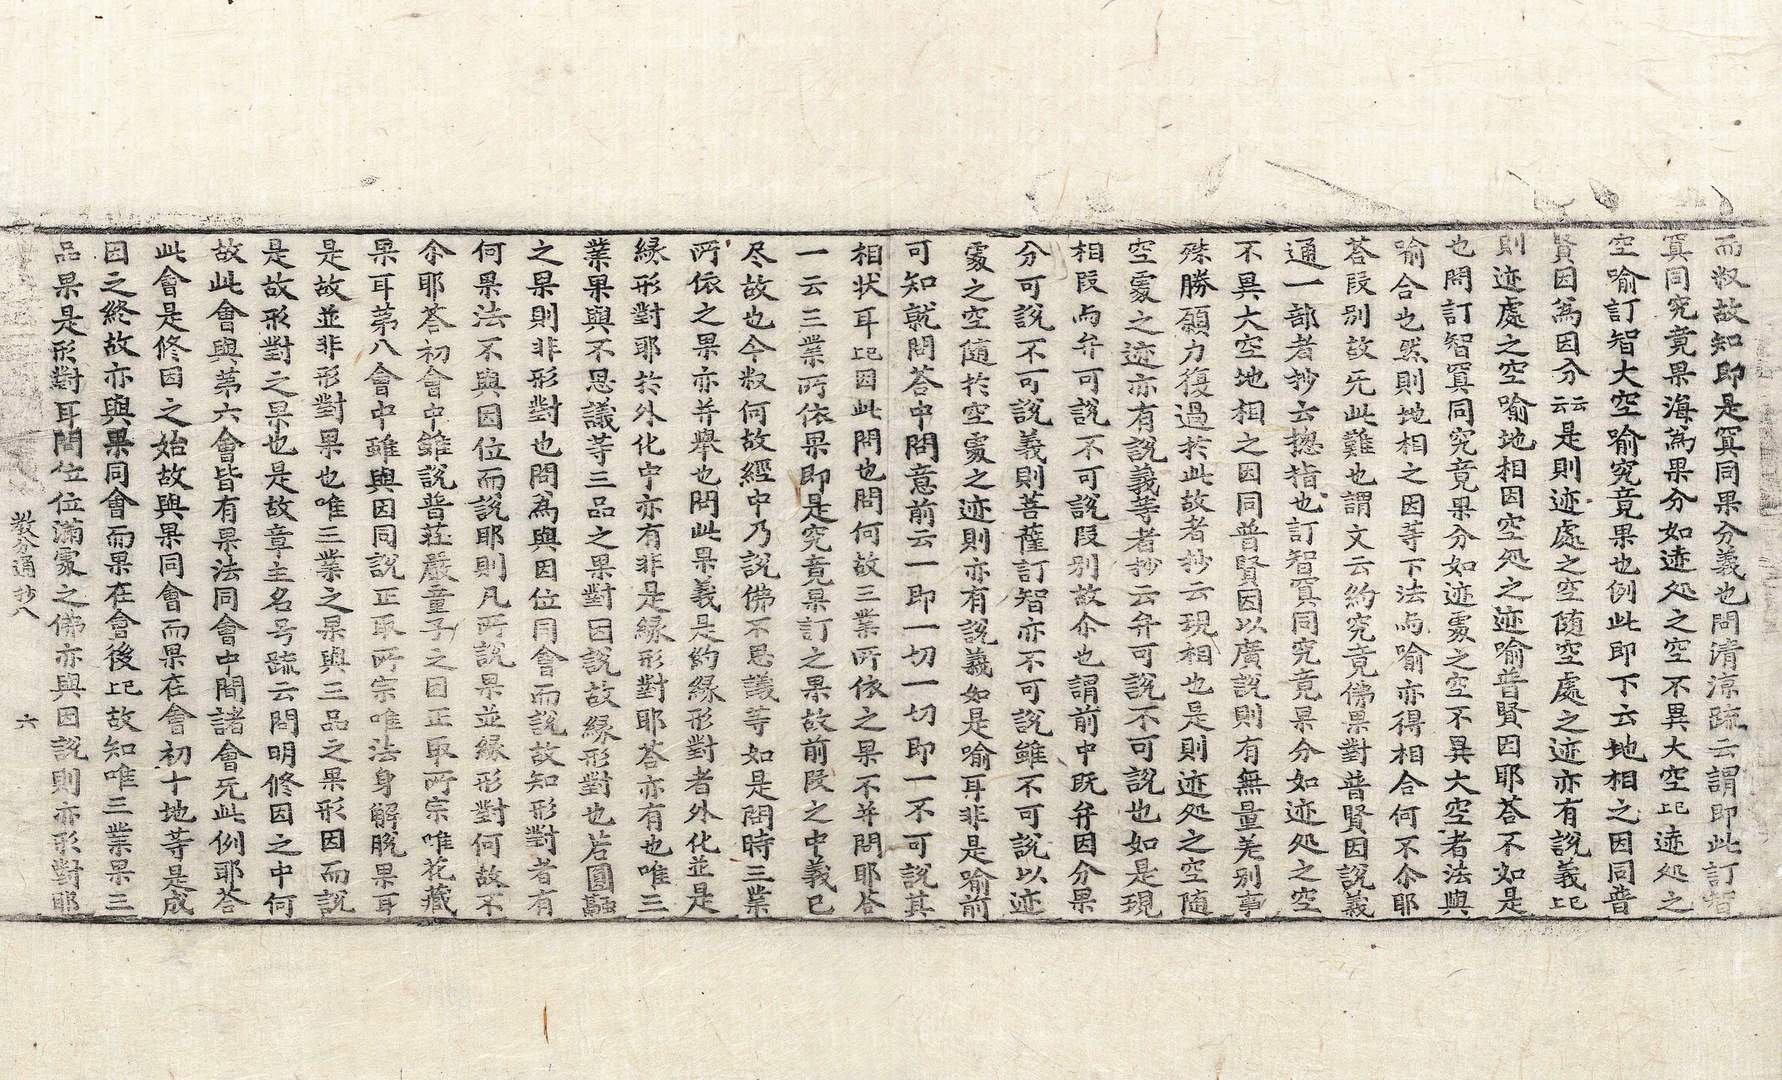 而釈故知即是冥同果分義也問清涼疏云謂即此訂智
冥同究竟果海爲果分如迹处之空不異大空七迹处之
空喻訂智大空喻究竟果也例此即下云地相之因同普
賢因爲因分云云是則迹處之空随空處之迹亦有說義七
則迹處之空喻地相因空处之迹喻普賢因耶荅不如是
也問訂智冥同究竟果分如迹䖏之空不異大空者法與
喻合也然則地相之因等下法与喻亦得相合何不尒耶
荅段别故旡此難也謂文云約究竟佛果對普賢因說義
通一部者抄云揔指也訂智冥同究竟果分如迹处之空
不異大空地相之因同普賢因以廣說則有無量差别事
殊勝願力復過於此故者抄云現相也是則迹处之空随
空䖏之迹亦有說義等者抄云弁可說不可說也如是現
相段与弁可說不可說段别故尒也謂前中既弁因分果
分可說不可說義則菩薩訂智亦不可說雖不可說以迹
䖏之空随於空䖏之迹則亦有說義如是喻耳非是喻前
可知就問荅中問意前云一即一切一切即一不可說其
相状耳七因此問也問何故三業所依之果不并問耶荅
一云三業所依果即是究竟果訂之果故前段之中義已
尽故也今釈何故經中乃說佛不思議等如是問時三業
所依之果亦并舉也問此果義是約縁形對者外化並是
縁形對耶於外化中亦有非是縁形對耶荅亦有也唯三
業果與不思議等三品之果對因說故縁形對也若圓融
之果則非形對也問爲與因位同會而說故知形對者有
何果法不與因位而說耶則凡所說果並縁形對何故不
尒耶荅初會中雖說普莊嚴童子之因正取所宗唯花藏
果耳苐八會中雖與因同說正取所宗唯法身解脫果耳
是故並非形對果也唯三業之果與三品之果形因而說
是故形對之果也是故章主名号䟽云問明修因之中何
故此會與苐六會皆有果法同會中間諸會旡此例耶荅
此會是修因之始故與果同會而果在會初十地等是成
因之終故亦與果同會而果在會後七故知唯三業果三
品果是形對耳問位位滿䖏之佛亦與因說則亦形對耶
教分通抄八　六